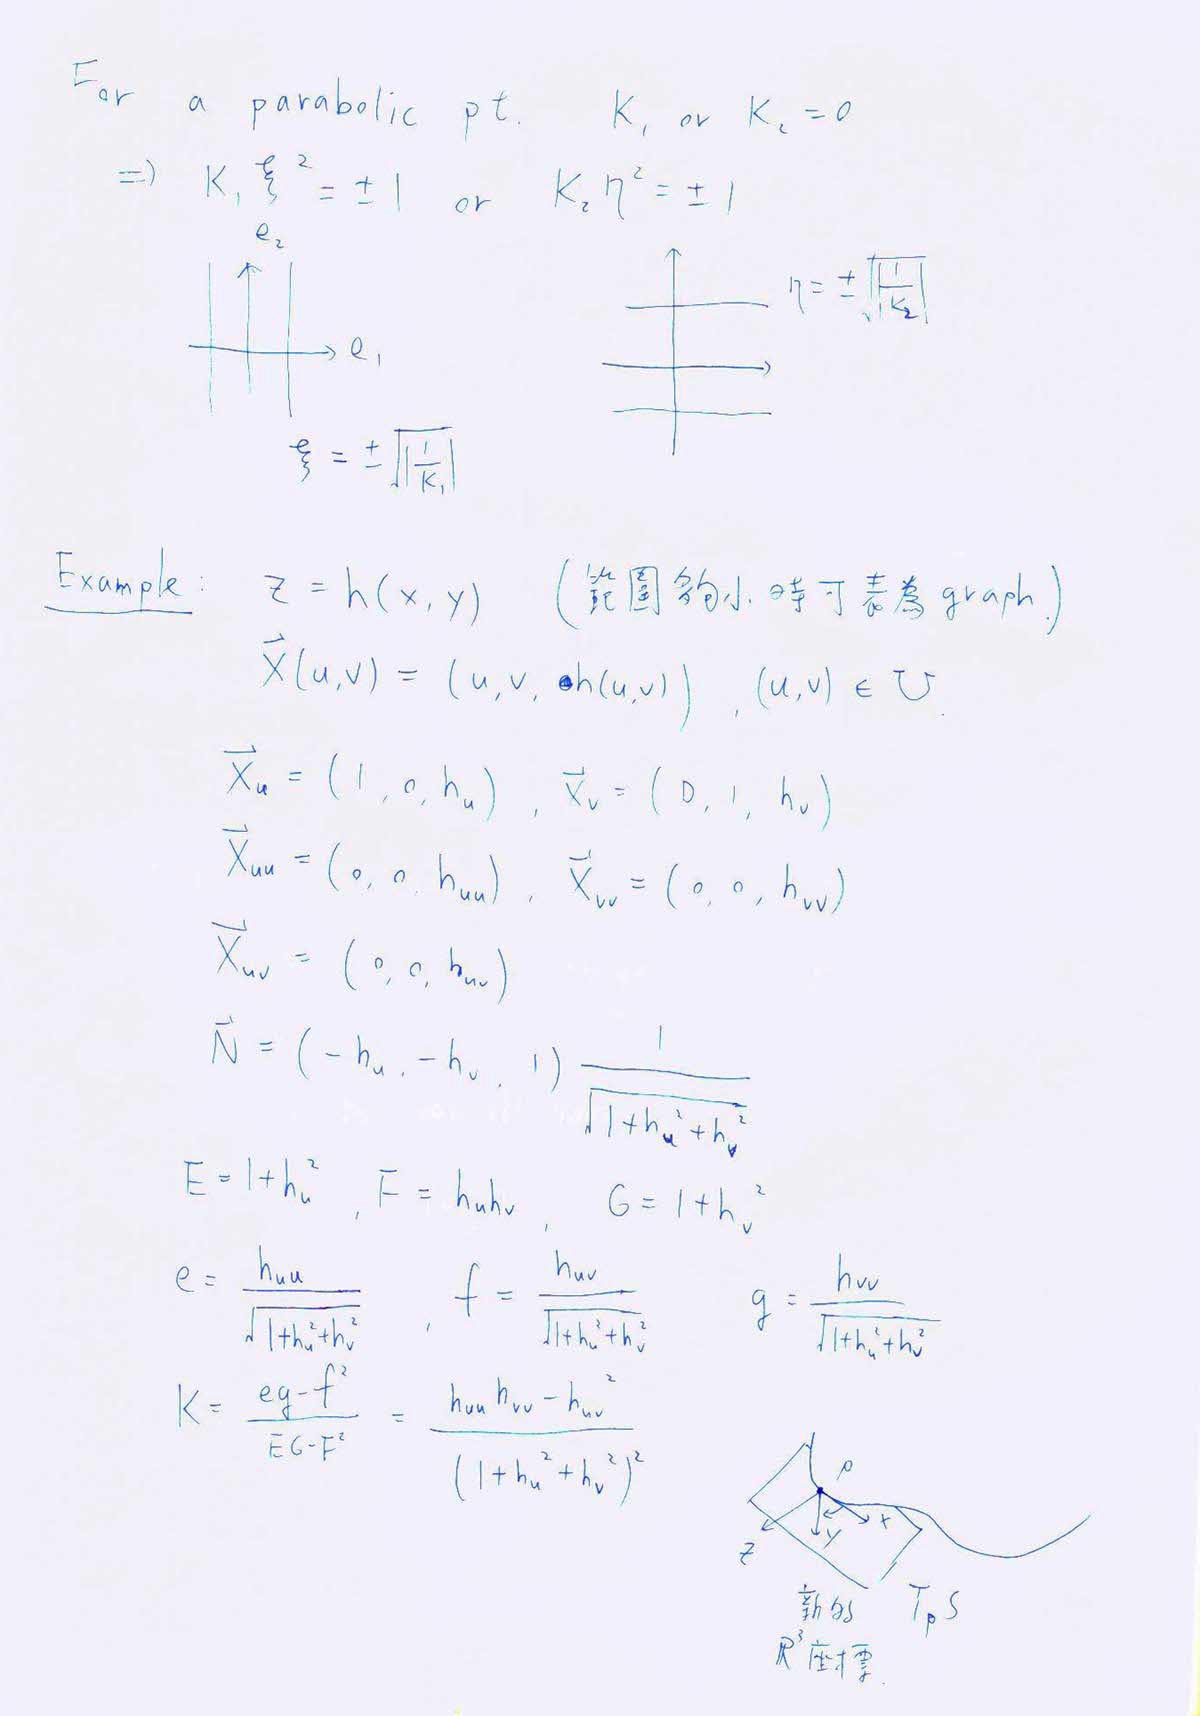 For a parabolic pt. K₁ or K₂ = 0
⇒) K₁ξ² = ±1 or K₂η² = ±1
e₂
e₁
ξ = ±√|1/K₁|
η = ±√|1/K₂|
Example: z = h(x, y) (範圍夠小時可表為 graph.)
X⃗(u,v) = (u, v, h(u,v)), (u,v) ∈ U.
X⃗ᵤ = (1, 0, hᵤ), X⃗ᵥ = (0, 1, hᵥ)
X⃗ᵤᵤ = (0, 0, hᵤᵤ), X⃗ᵥᵥ = (0, 0, hᵥᵥ)
X⃗ᵤᵥ = (0, 0, hᵤᵥ)
N⃗ = (-hᵤ, -hᵥ, 1) 1/√(1+hᵤ²+hᵥ²)
E = 1+hᵤ², F = hᵤhᵥ, G = 1+hᵥ²
e = hᵤᵤ/√(1+hᵤ²+hᵥ²), f = hᵤᵥ/√(1+hᵤ²+hᵥ²) g = hᵥᵥ/√(1+hᵤ²+hᵥ²)
K = (eg-f²)/(EG-F²) = (hᵤᵤhᵥᵥ - hᵤᵥ²)/(1+hᵤ²+hᵥ²)²
p
x
y
z
新的 TₚS
R³座標.